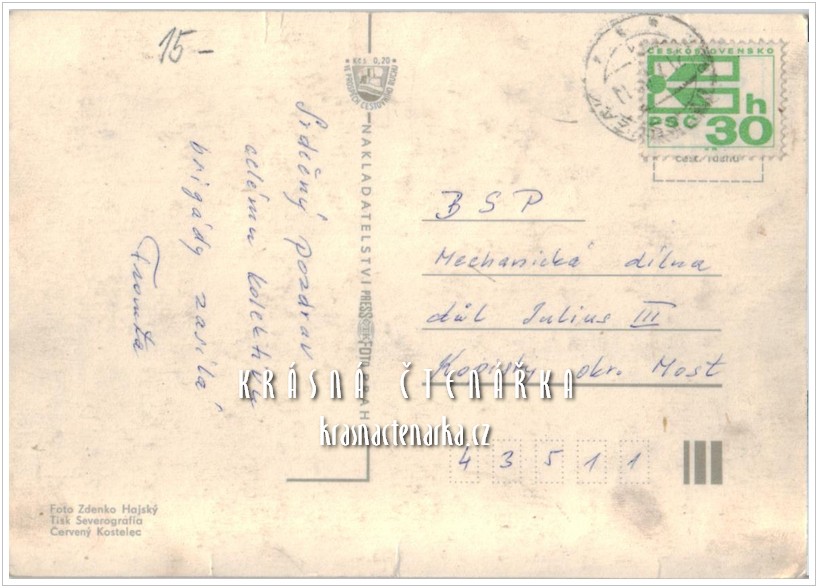 15-
Kčs 0,20
VE PROSPĚCH CESTOVNÍHO RUCHU
Srdečný pozdrav
celému kolektivu
brigády zasílá
Franta
NAKLADATELSTVÍ PRESSFOTO PRAHA
ČESKOSLOVENSKO
PSČ 30 h
BSP
Mechanická dílna
důl Julius III
Kopisty okr. Most
43511
KRÁSNÁ ČTENÁŘKA
krasnactenarka.cz
Foto Zdenko Hajský
Tisk Severografia
Červený Kostelec